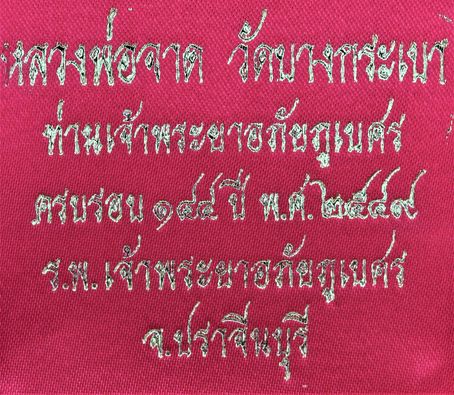 หลวงพ่อจาด วัดบางกระเบา
ท่านเจ้าพระยาอภัยภูเบศร
ครบรอบ ๑๔๔ ปี พ.ศ. ๒๕๔๙
ร.พ. เจ้าพระยาอภัยภูเบศร
จ.ปราจีนบุรี